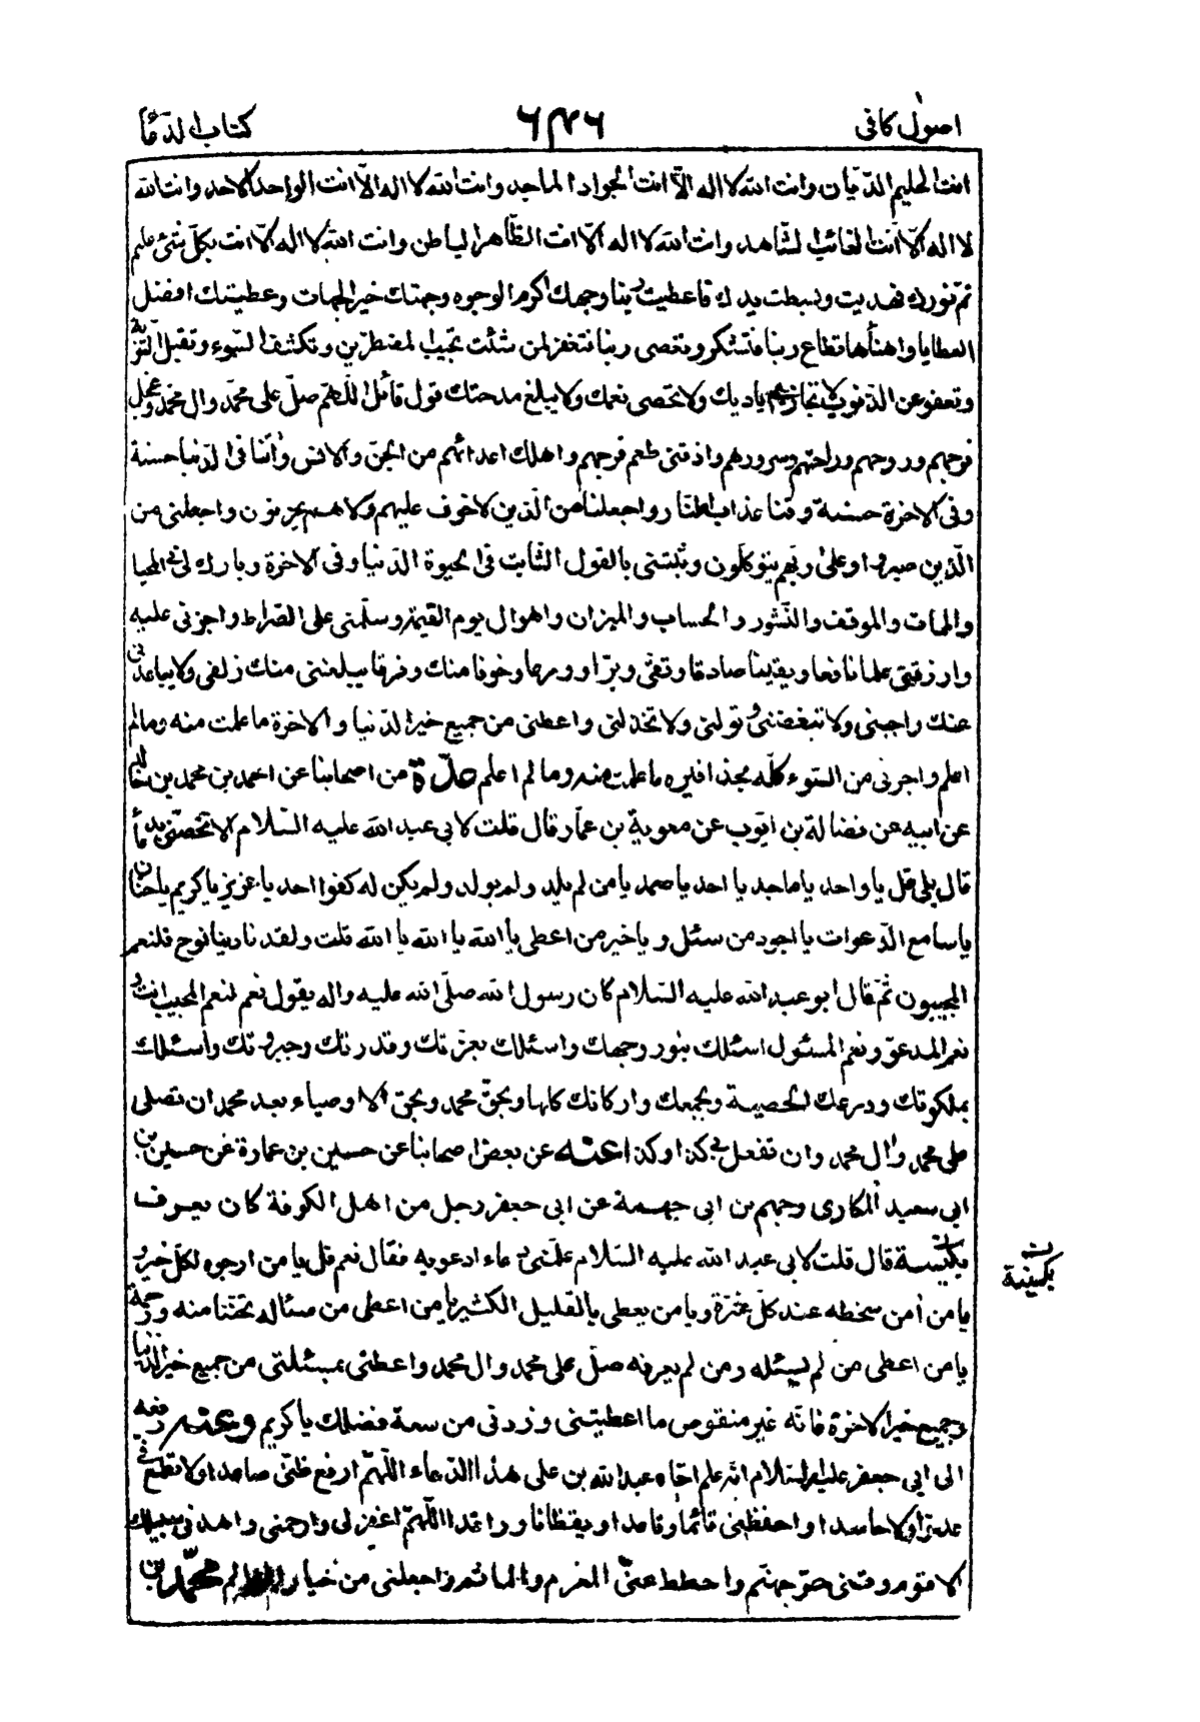 اصول كافى ٦٤٦ كتاب الدّعا
انت الحليم الدّيّان وانت الله لا اله الّا انت الجواد الماجد وانت الله لا اله الّا انت الواحد الاحد وانت الله
لا اله الّا انت الغائب الشّاهد وانت الله لا اله الّا انت الظّاهر الباطن وانت الله لا اله الّا انت بكلّ شئ عليم
تمّ نورك فهديت وبسطت يدك فاعطيت ربّنا وجهك اكرم الوجوه وجهتك خير الجهات وعطيتك افضل
العطايا واهنأها تطاع ربنا فتشكر وتعصى ربنا فتغفر لمن شئت تجيب المضطرّين وتكشف السّوء وتقبل التّوبة
وتعفو عن الذّنوب لا تجازى اياديك ولا تحصى نعمك ولا يبلغ مدحتك قول قائل اللّهمّ صلّ على محمّد وال محمّد وعجّل
فرجهم وروحهم وراحتهم وسرورهم واذقنى طعم فرجهم واهلك اعدائهم من الجنّ والانس واٰتنا فى الدّنيا حسنة
وفى الاخرة حسنة وقنا عذاب النّار واجعلنا من الّذين لا خوف عليهم ولا هم يحزنون واجعلنى من
الّذين صبروا وعلى ربّهم يتوكّلون وثبّتنى بالقول الثّابت فى الحيوة الدّنيا وفى الاخرة وبارك لى فى المحيا
والممات والموقف والنّشور والحساب والميزان واهوال يوم القيمة وسلّمنى على الصّراط واجزنى عليه
وارزقنى علما نافعا ويقينا صادقا وتقى وبرّا وورعا وخوفا منك وفرقا يبلغنى منك زلفى ولا يباعدنى
عنك واحبنى ولا تبغضنى وتولنى ولا تخذلنى واعطنى من جميع خير الدّنيا والاخرة ما علمت منه وما لم
اعلم واجرنى من السّوء كلّه بحذافيره ما علمت منه وما لم اعلم عدّة من اصحابنا عن احمد بن محمد بن خالد
عن ابيه عن فضالة بن ايّوب عن معوية بن عمّار قال قلت لابى عبد الله عليه السّلام الا تخصّنى بدعاء
قال بلى قل يا واحد يا ماجد يا احد يا صمد يا من لم يلد ولم يولد ولم يكن له كفوا احد يا عزيز يا كريم يا حنّان
يا سامع الدّعوات يا اجود من سئل ويا خير من اعطى يا الله يا الله يا الله قلت ولقد نادينا نوح فلنعم
المجيبون ثمّ قال ابو عبد الله عليه السّلام كان رسول الله صلّى الله عليه واله يقول نعم لنعم المجيب انت و
نعم المدعوّ ونعم المسئول اسئلك بنور وجهك واسئلك بعزّتك وقدرتك وجبروتك واسئلك
بملكوتك ودرعك الحصينة وبجمعك واركانك كلها وبحقّ محمد وبحق الاوصياء بعد محمد ان تصلى
على محمد واٰل محمد وان تفعل بى كذا وكذا عنه عن بعض اصحابنا عن حسين بن عمارة عن حسين بن
ابى سعيد المكارى وجهم بن ابى جهمة عن ابى جعفر رجل من اهل الكوفة كان يعرف
بكنيسة قال قلت لابى عبد الله عليه السّلام علّمنى دعاء ادعو به فقال نعم قل يا من ارجوه لكلّ خير و
يا من اٰمن سخطه عند كلّ عثرة ويا من يعطى بالقليل الكثير يا من اعطى من سئاله تحننا منه ورحمة
يا من اعطى من لم يسئله ومن لم يعرفه صلّ على محمد وال محمد واعطنى بمسئلتى من جميع خير الدّنيا
وجميع خير الاخرة فانّه غير منقوص ما اعطيتنى وزدنى من سعة فضلك يا كريم وعنه رفعه
الى ابى جعفر عليه السّلام انّه علم اخاه عبد الله بن على هذا الدّعاء اللّهمّ ارفع ظنّى صاعدا ولا تطمع فى
عدوّا ولا حاسدا واحفظنى قائما وقاعدا ويقظانا وراقدا اللّهمّ اغفر لى وارحمنى واهدنى سبيلك
الاقوم وقنى حرّ جهنّم واحطط عنّى المغرم والماثم واجعلنى من خيار العالم محمّد بن